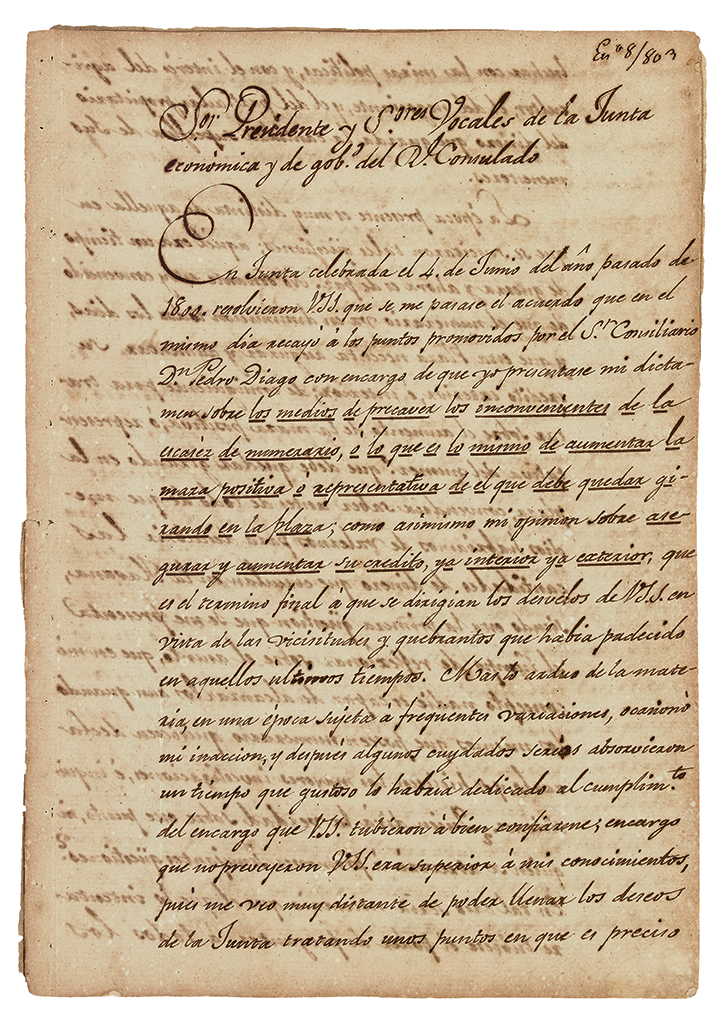 En.º 8/803
Sor. Presidente y S.ores Vocales de la Junta
económica y de gob.º del R.l Consulado
En Junta celebrada el 4. de Junio del año pasado de
1800. resolvieron VSS. que se me pasase el acuerdo que en el
mismo dia recayó á los puntos promovidos por el S.r Consiliario
D.n Pedro Diago con encargo de que yo presentase mi dicta-
men sobre los medios de precaver los inconvenientes de la
escaséz de numerario, ó lo que es lo mismo de aumentar la
maza positiva o representativa de el que debe quedar gi-
rando en la plaza; como asimismo mi opinion sobre ase-
gurar y aumentar su credito, ya interior ya exterior, que
es el termino final á que se dirigian los desvelos de VSS. en
vista de las vicisitudes y quebrantos que habia padecido
en aquellos ultimos tiempos. Mas lo arduo de la mate-
ria, en una época sujeta á freqüentes variaciones, ocasionó
mi inaccion, y despues algunos cuydados serios absorvieron
un tiempo que gustoso lo habria dedicado al cumplim.to
del encargo que VSS. tubieron á bien confiarme; encargo
que no preveyeron VSS. erá superior á mis conocimientos,
pues me veo muy distante de poder llenar los deseos
de la Junta tratando unos puntos en que es preciso